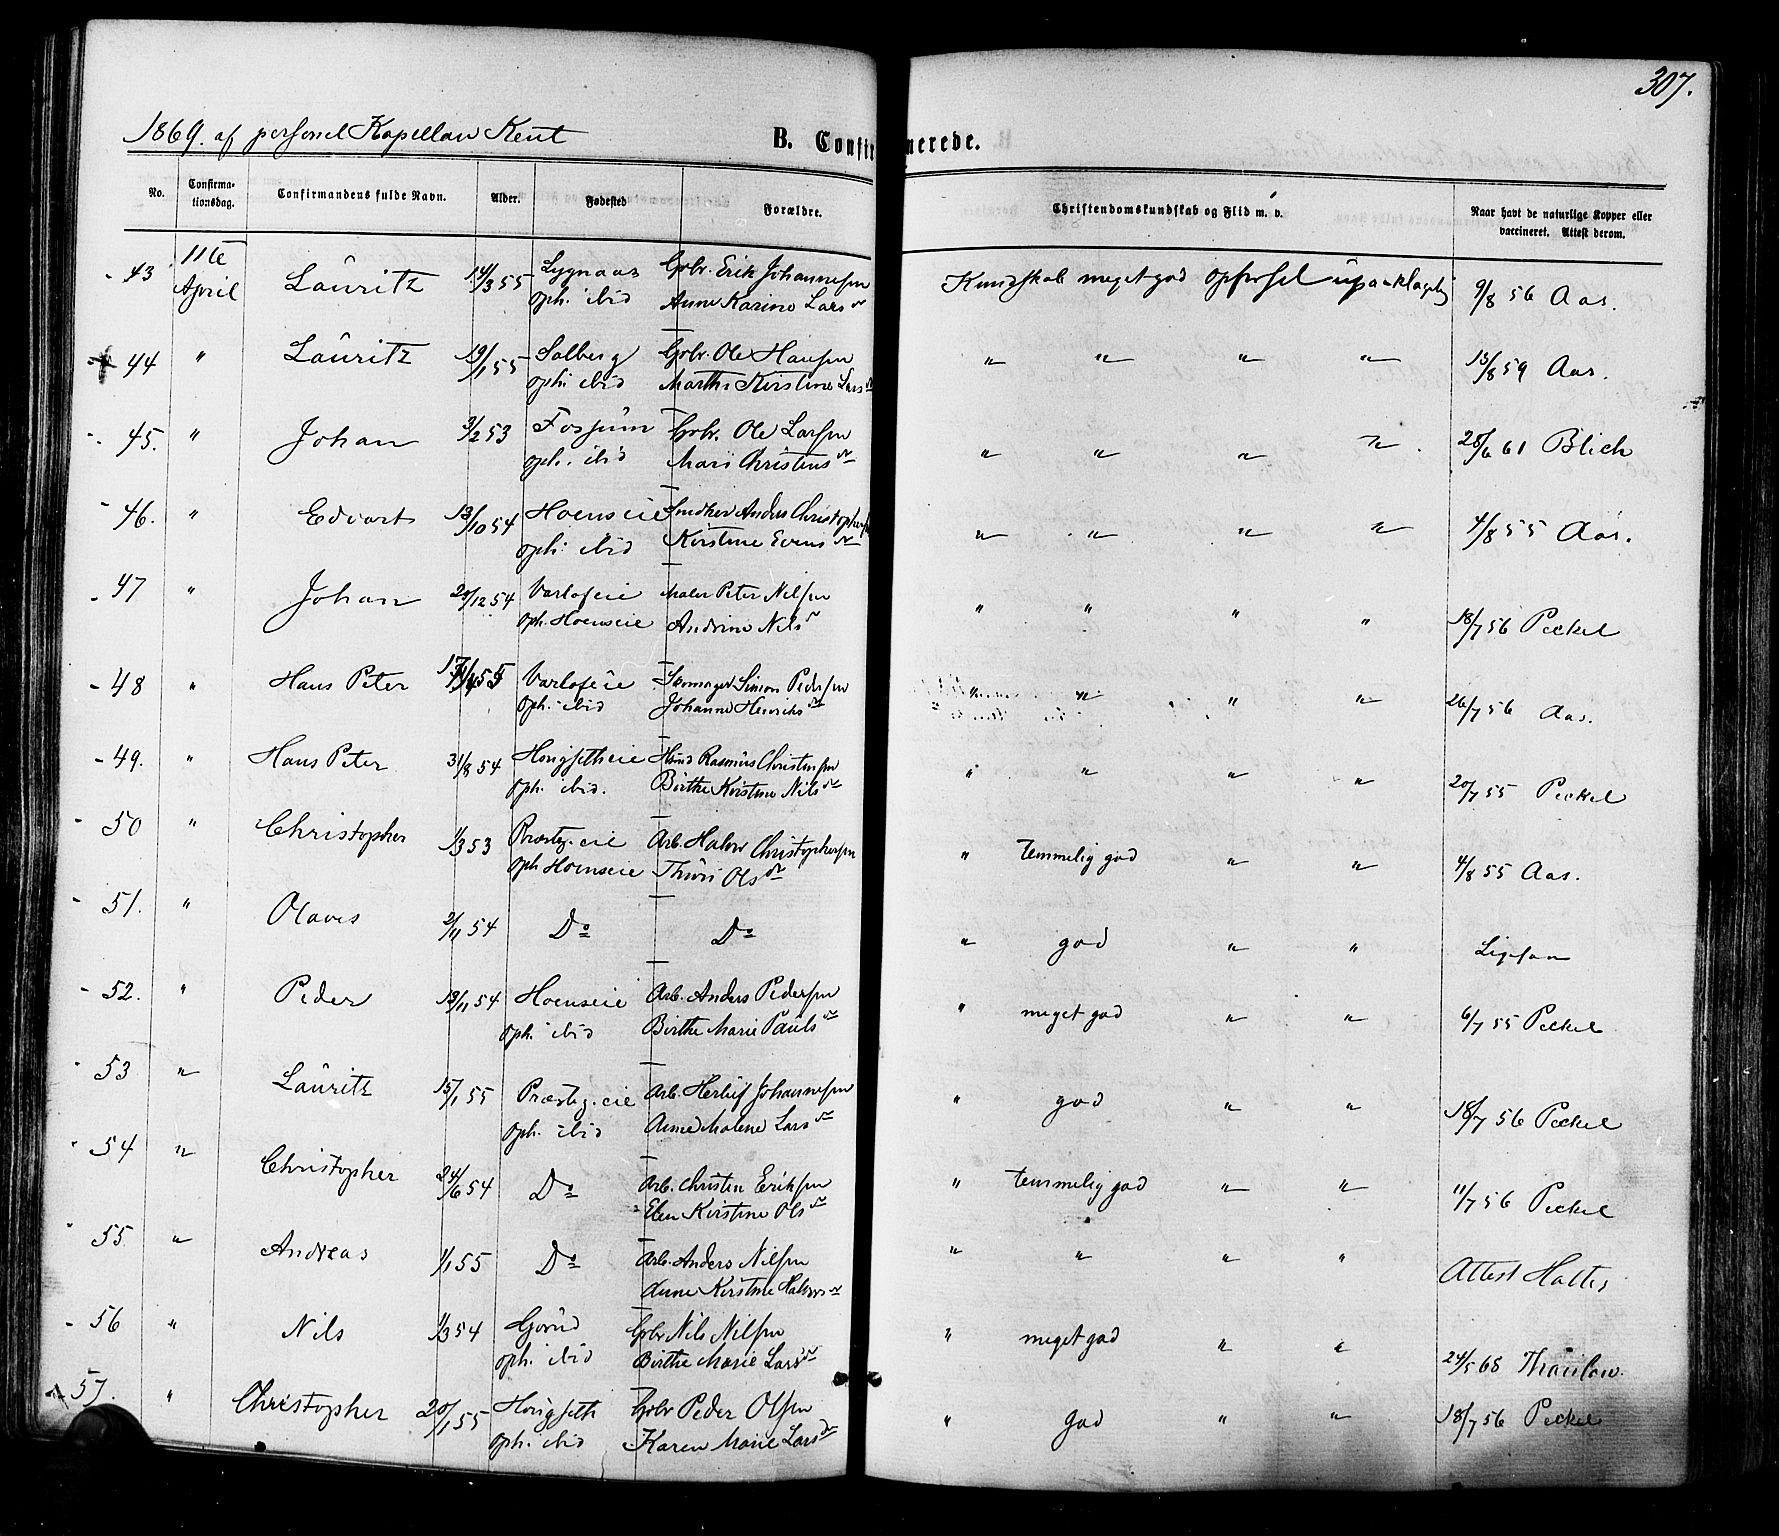 307.
1869. af personel Kapellan Kent
B. Confirmerede.
No. Confirmationsdag. Confirmandens fulde Navn. Alder. Fødested Forældre. Christendomskundskab og Flid m. v. Naar havt de naturlige Kopper eller vaccineret. Attest derom.
43 11te April Lauritz 14/3 55 Lygnaas Gbr. Erik Johannesen Kundskab meget god opførsel upaaklagelig 9/8 56 Aas.
oph. ibid Anne Karine Larsdr
44 " Lauritz 19/1 55 Solberg Gbr. Ole Hansen " " " " 13/8 59 Aas.
oph. ibid Marthe Kirstine Larsdr
45. " Johan 3/2 53 Fossum Gbr. Ole Larsen " " " " 28/6 61 Blich
oph. ibid Mari Christensdr
46. " Edvart 13/10 54 Hoenseie Snedker Anders Christophersen " " " " 4/8 55 Aas.
oph. ibid Kirstine Evensdr
47 " Johan 20/12 54 Varloseie Maler Peter Nilsen " " " " 18/7 56 Peckel
oph. Hoenseie Andrine Nilsdr
48 " Hans Peter Varloseie Skomager Simon Pedersen " " " " 26/7 56 Aas.
oph. ibid Johanne Henriksdr
49. " Hans Peter 31/8 54 Horgsetheie Rasmus Christensen " " " " 20/7 55 Peckel
oph. ibid. Birthe Kirstine Nilsdr
50 " Christopher 1/3 53 Præstg.eie Arb. Halvor Christophersen " temmelig god " " 4/8 55 Aas.
oph Hoenseie Thuri Olsdr
51. " Olaves 2/11 54 Do Do " god " " Ligesaa
52. " Peder 13/11 54 Hoenseie Arb. Anders Pedersen " meget god " " 6/7 55 Peckel
oph ibid Birthe Marie Paulsdr
53 " Lauritz 15/1 55 Præstg.eie Arb. Herluf Johannesen " god " " 18/7 56 Peckel
oph. ibid Anne Malene Larsdr
54 " Christopher 24/6 54 Do Arb. Christen Eriksen " temmelig god " " 11/7 56 Peckel
Elen Kirstine Olsdr
55 " Andreas 1/1 55 Do Arb. Anders Nilsen " " " " Attest
Anne Kirstine Halvorsdr
56 " Nils 1/3 54 Gjørud Gbr Nils Nilsen " meget god " " 24/5 68 Thaulow.
oph. ibid Birthe Marie Larsdr
57. " Christopher 20/1 55 Horgseth Gbr Peder Olsen " God " " 18/7 56 Peckel
oph. ibid Karen Marie Larsdr